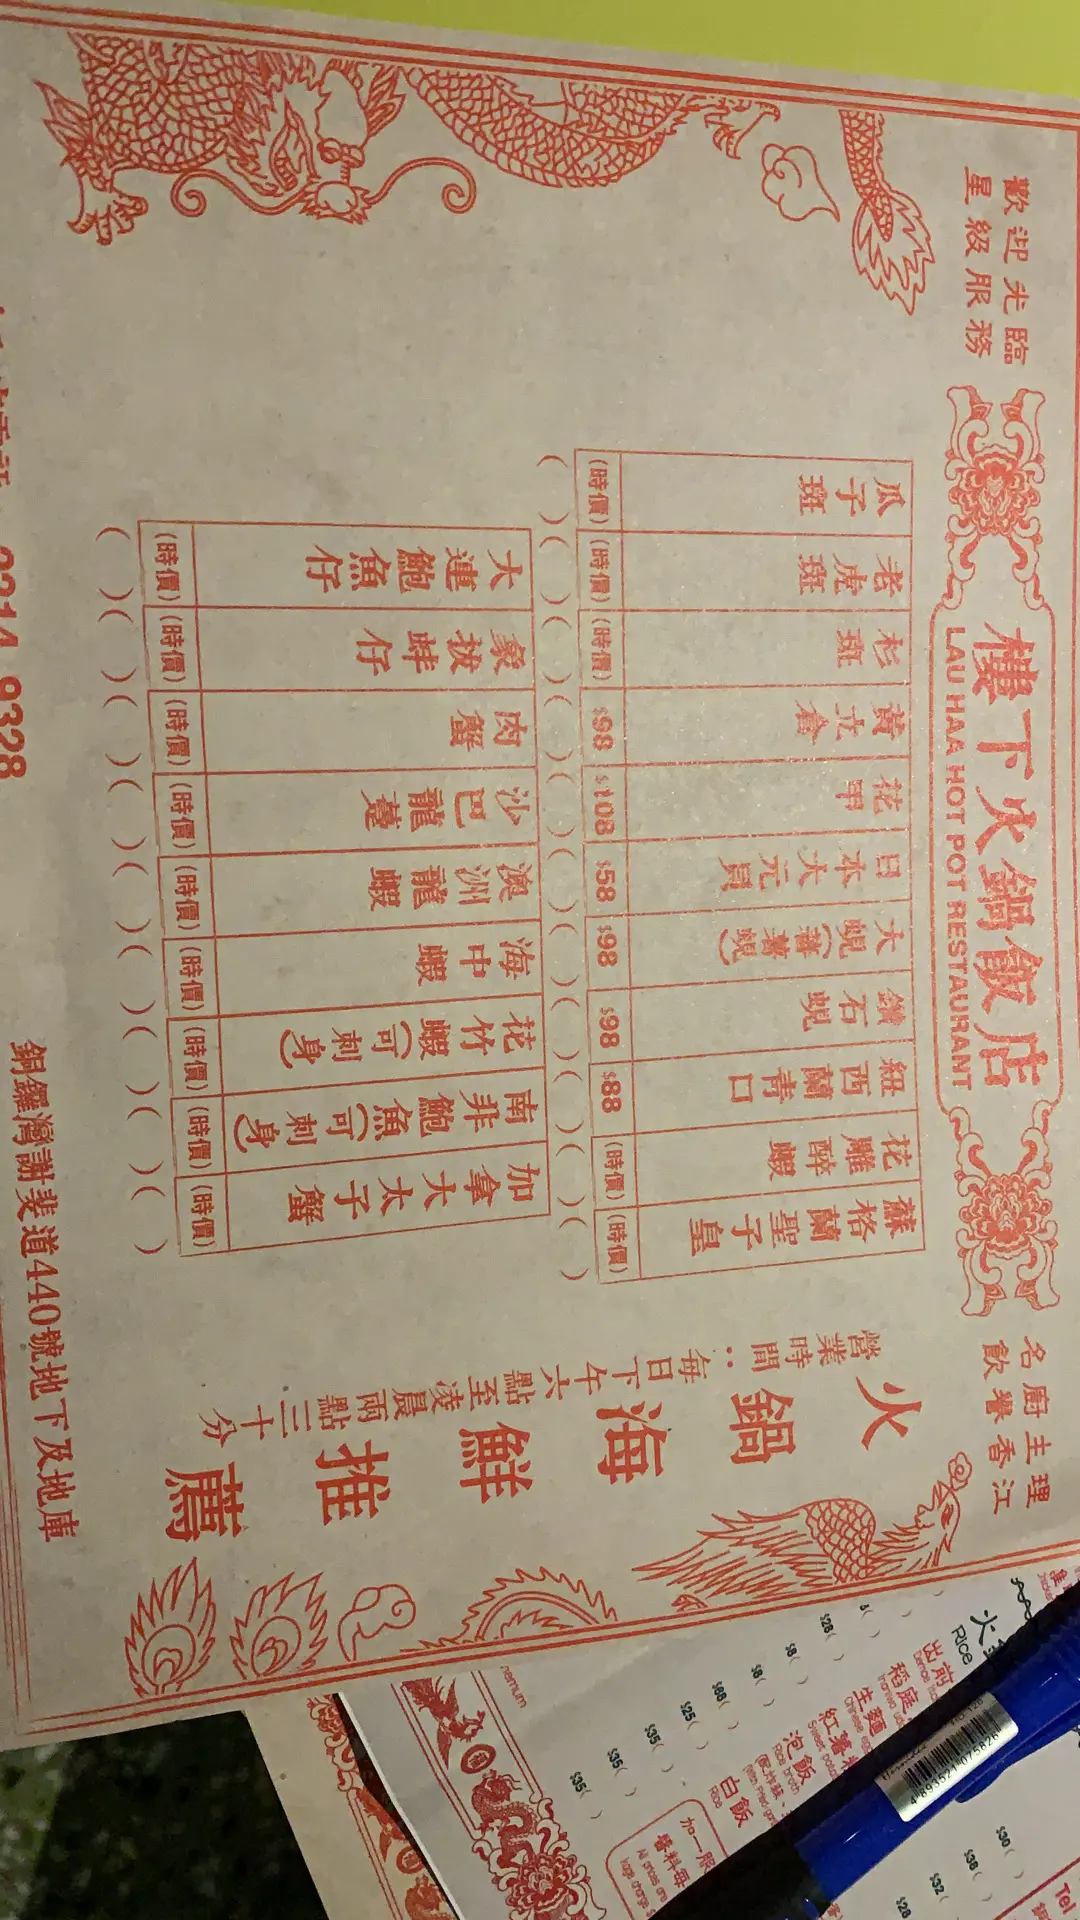 名廚主理
飲譽香江
樓下火鍋飯店
LAU HAA HOT POT RESTAURANT
歡迎光臨
星級服務
火鍋海鮮推薦
營業時間：每日下午六點至凌晨兩點三十分
蘇格蘭聖子皇 (時價) ( )
花雕醉蝦 (時價) ( )
紐西蘭青口 $88 ( )
鑽石蜆 $98 ( )
大蜆(蕃薯蜆) $98 ( )
日本大元貝 $58 ( )
花甲 $108 ( )
黃立倉 $98 ( )
杉斑 (時價) ( )
老虎斑 (時價) ( )
瓜子斑 (時價) ( )
加拿大太子蟹 (時價) ( )
南非鮑魚(可刺身) (時價) ( )
花竹蝦(可刺身) (時價) ( )
海中蝦 (時價) ( )
澳洲龍蝦 (時價) ( )
沙巴龍躉 (時價) ( )
肉蟹 (時價) ( )
象拔蚌仔 (時價) ( )
大連鮑魚仔 (時價) ( )
銅鑼灣謝斐道440號地下及地庫
9328
Rice
生麵
泡飯
Rice broth
白飯
Rice
$28 ( )
$8 ( )
$8 ( )
$68 ( )
$25 ( )
$35 ( )
$35 ( )
$35 ( )
$30 ( )
$38 ( )
$32 ( )
$28
4 893521 075826
Tel